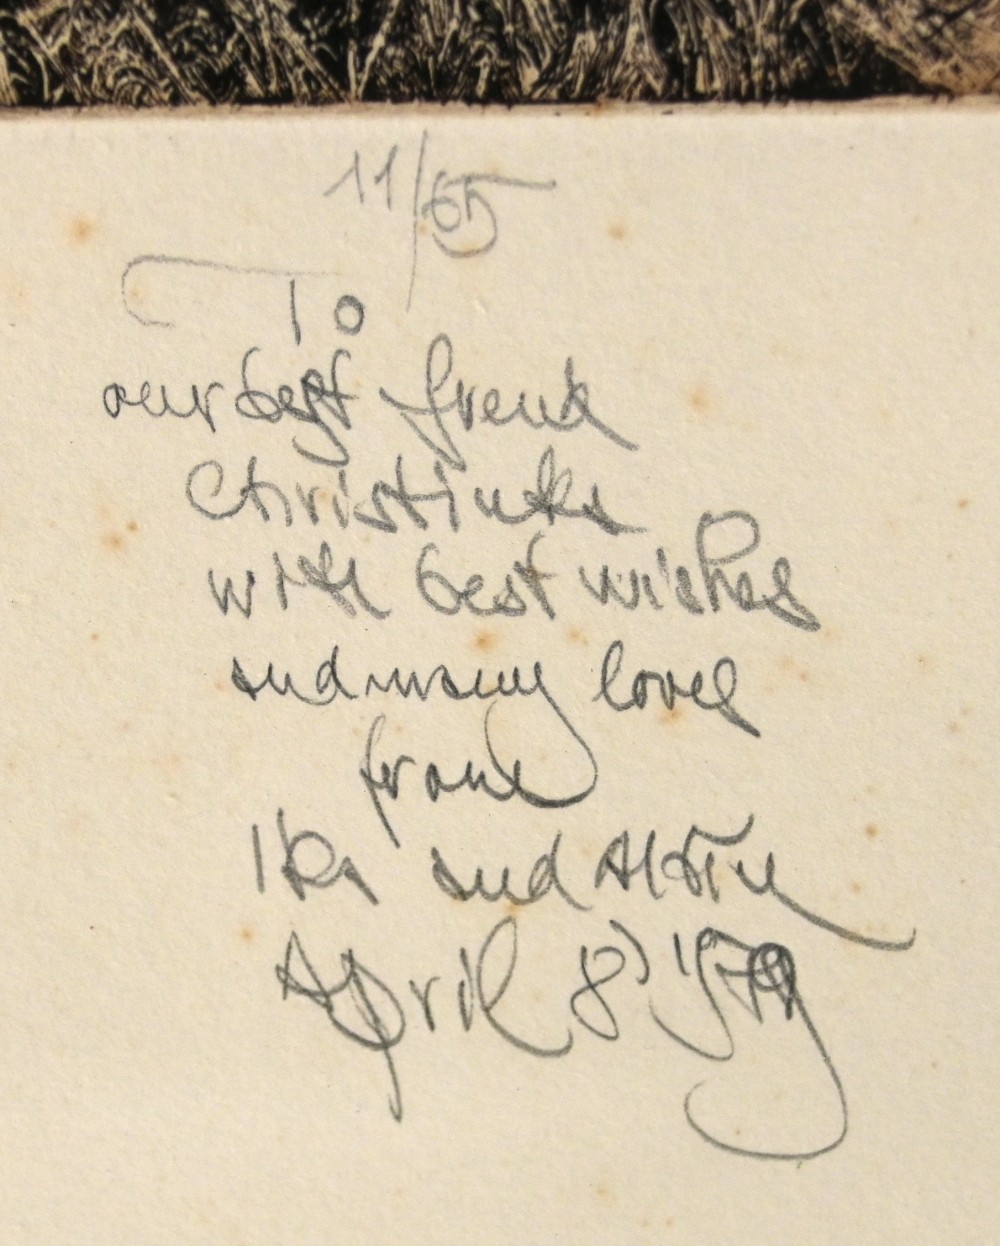 11/65
To
our best frend
Christinka
with best wishes
and many loves
from
Ika and
April 8' 1979